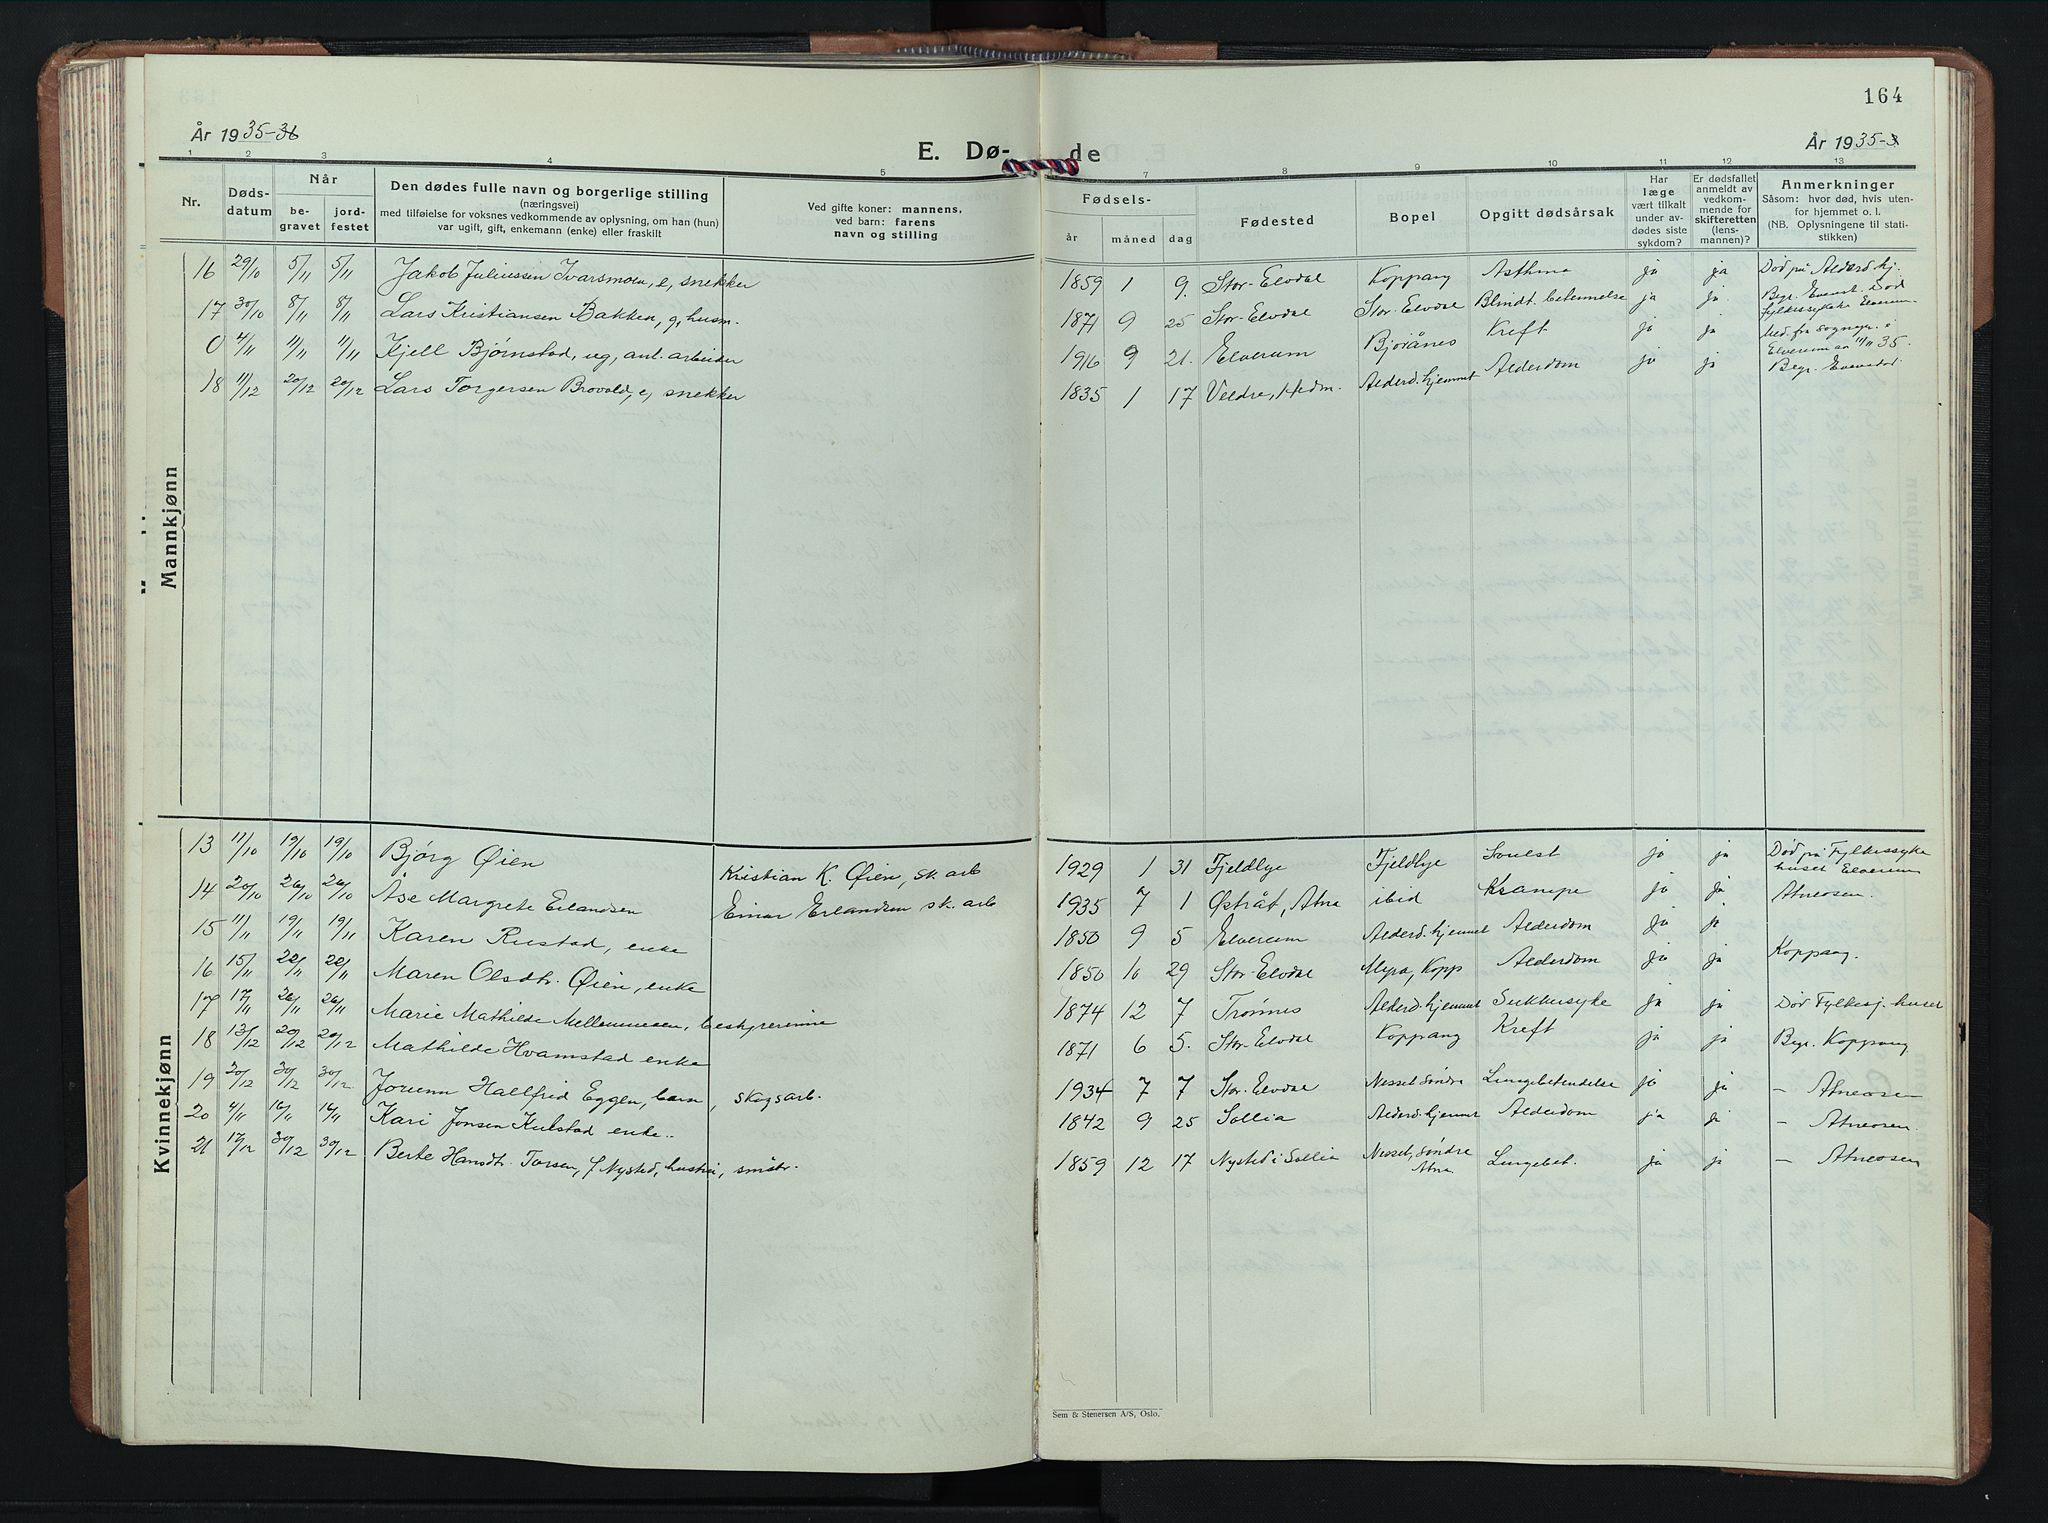 164
År 1935-36
År 1935-3
E. Dø-
de
1 2 3 4 5 7 8 9 10 11 12 13
Nr.
Døds-
datum
Når
be-
gravet
jord-
festet
Den dødes fulle navn og borgerlige stilling
(næringsvei)
med tilføielse for voksnes vedkommende av oplysning, om han (hun)
var ugift, gift, enkemann (enke) eller fraskilt
Ved gifte koner: mannens,
ved barn: farens
navn og stilling
Fødsels-
år måned dag
Fødested
Bopel
Opgitt dødsårsak
Har
læge
vært tilkalt
under av-
dødes siste
sykdom?
Er dødsfallet
anmeldt av
vedkom-
mende for
skifteretten
(lens-
mannen)?
Anmerkninger
Såsom: hvor død, hvis uten-
for hjemmet o. l.
(NB. Oplysningene til stati-
stikken)
Mannkjønn
16 29/10 5/11 5/11 Jakob Juliussen Ivarsmoen, e, snekker 1859 1 9. Stor-Elvdal Koppang Asthma ja ja Død på Alderd.hj.
17 30/10 8/11 8/11 Lars Kristiansen Bakken, g, husm. 1871 9 25 Stor-Elvdal Stor-Elvdal Blindt.betennelse ja ja Begr. Evenst. Død
Fylkessykeh. Elverum.
0 4/11 11/11 11/11 Kjell Bjørnstad, ug, anl. arbeider 1916 9 21. Elverum Bjørånes Kreft ja ja Med. fra sognepr. i
Elverum 11/11 35.
18 11/12 20/12 20/12 Lars Torgersen Brovold, e, snekker 1835 1 17 Veldre, Hedm. Alderd.hjemmet Alderdom ja ja Begr.
Kvinnekjønn
13 11/10 19/10 19/10 Bjørg Øien Kristian K. Øien, sk. arb 1929 1 31 Fjeldlye Fjeldlye ja ja Død på Fylkessyke
huset Elverum
14 20/10 26/10 26/10 Åse Margrete Erlandsen Einar Erlandsen sk. arb 1935 7 1 Østråt, Atna ibid Krampe ja ja Atneosen.
15 11/11 19/11 19/11 Karen Rustad, enke 1850 9 5 Elverum Alderd.hjemmet Alderdom ja ja
16 15/11 22/11 22/11 Maren Olsdtr. Øien, enke 1850 10 29 Stor-Elvdal Myra, Kopp Alderdom ja ja Koppang.
17 17/11 26/11 26/11 Marie Mathilde Mellemmoen, bestyrerinne 1874 12 7 Trønnes Alderd.hjemmet Sukkersyke ja ja Død Fylkessj.huset
18 13/12 20/12 20/12 Mathilde Hvamstad enke 1871 6 5. Stor-Elvdal Koppang Kreft ja ja Begr. Koppang
19 20/12 30/12 30/12 Jorunn Hallfrid Eggen, barn, skogsarb. 1934 7 7 Stor-Elvdal Nesset Søndre Lungebetendelse ja ja - Atneosen
20 4/11 16/11 14/11 Kari Jonsen Kulstad enke.. 1842 9 25 Sollia Alderd.hjemmet Alderdom ja ja - Atneosen.
21 17/12 30/12 30/12 Berte Hansdtr. Torsen, f Nysted, hustru, småbr. 1859 12 17 Nysted i Sollia Nesset, Søndre
Atna Lungebet. ja ja - Atneosen
Sem & Stenersen A/S, Oslo.